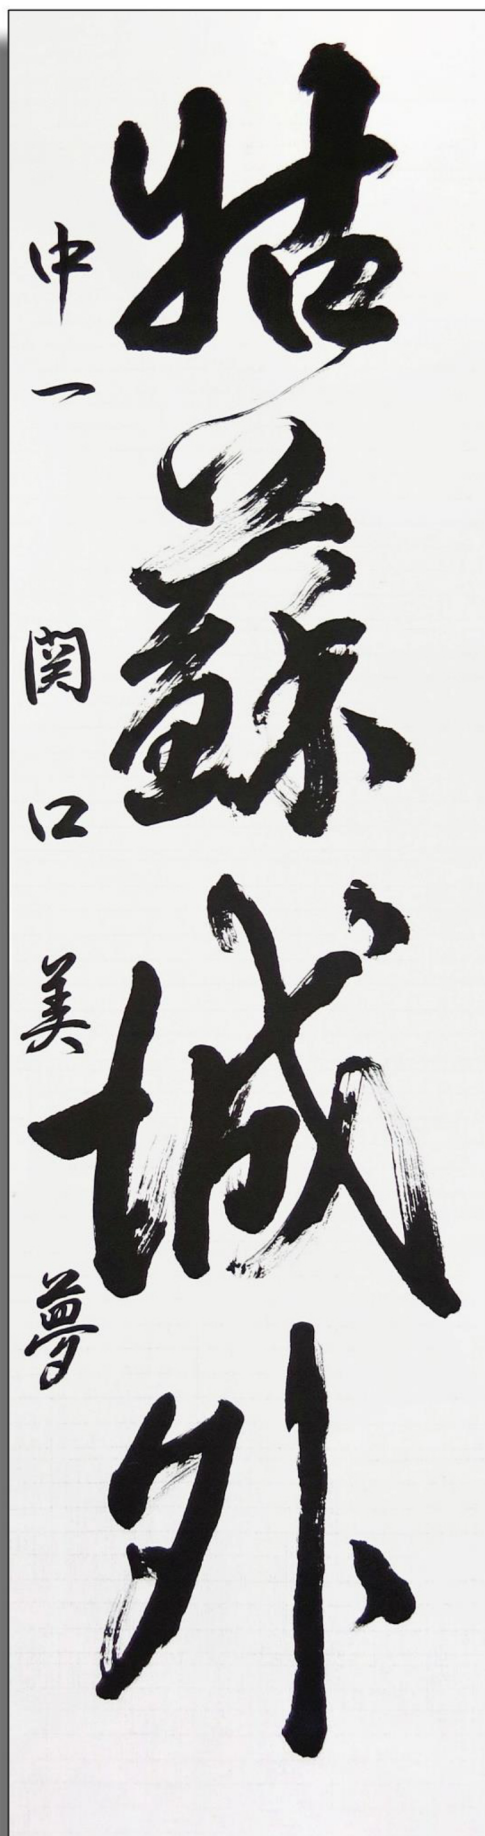 姑蘇城外
中一 関口美夢